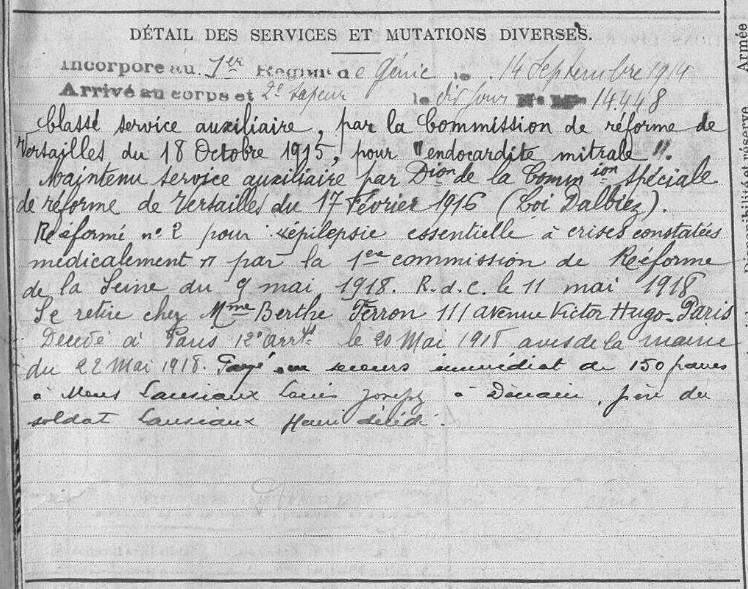 DÉTAIL DES SERVICES ET MUTATIONS DIVERSES.
Incorporé au 1er Régiment de Génie le 14 Septembre 1914
Arrivé au corps et 2e sapeur le dit jour No Mle 14448
Classé service auxiliaire, par la Commission de réforme de
Versailles du 18 Octobre 1915, pour "endocardite mitrale".
Maintenu service auxiliaire par Dion de la Commion spéciale
de réforme de Versailles du 17 Février 1916 (Loi Dalbiez).
Réformé no 2 pour "épilepsie essentielle à crises constatées
médicalement" par la 1ere commission de Réforme
de la Seine du 9 mai 1918. R.d.C. le 11 mai 1918
Se retire chez Mme Berthe Ferron 111 avenue Victor Hugo-Paris
Décédé à Paris 12e arrt le 20 Mai 1918 avis de la mairie
du 22 Mai 1918. Payé un secours immédiat de 150 francs
à Mons Lausiaux Louis Joseph à Denain, père du
soldat Lausiaux Henri décédé.
Armée